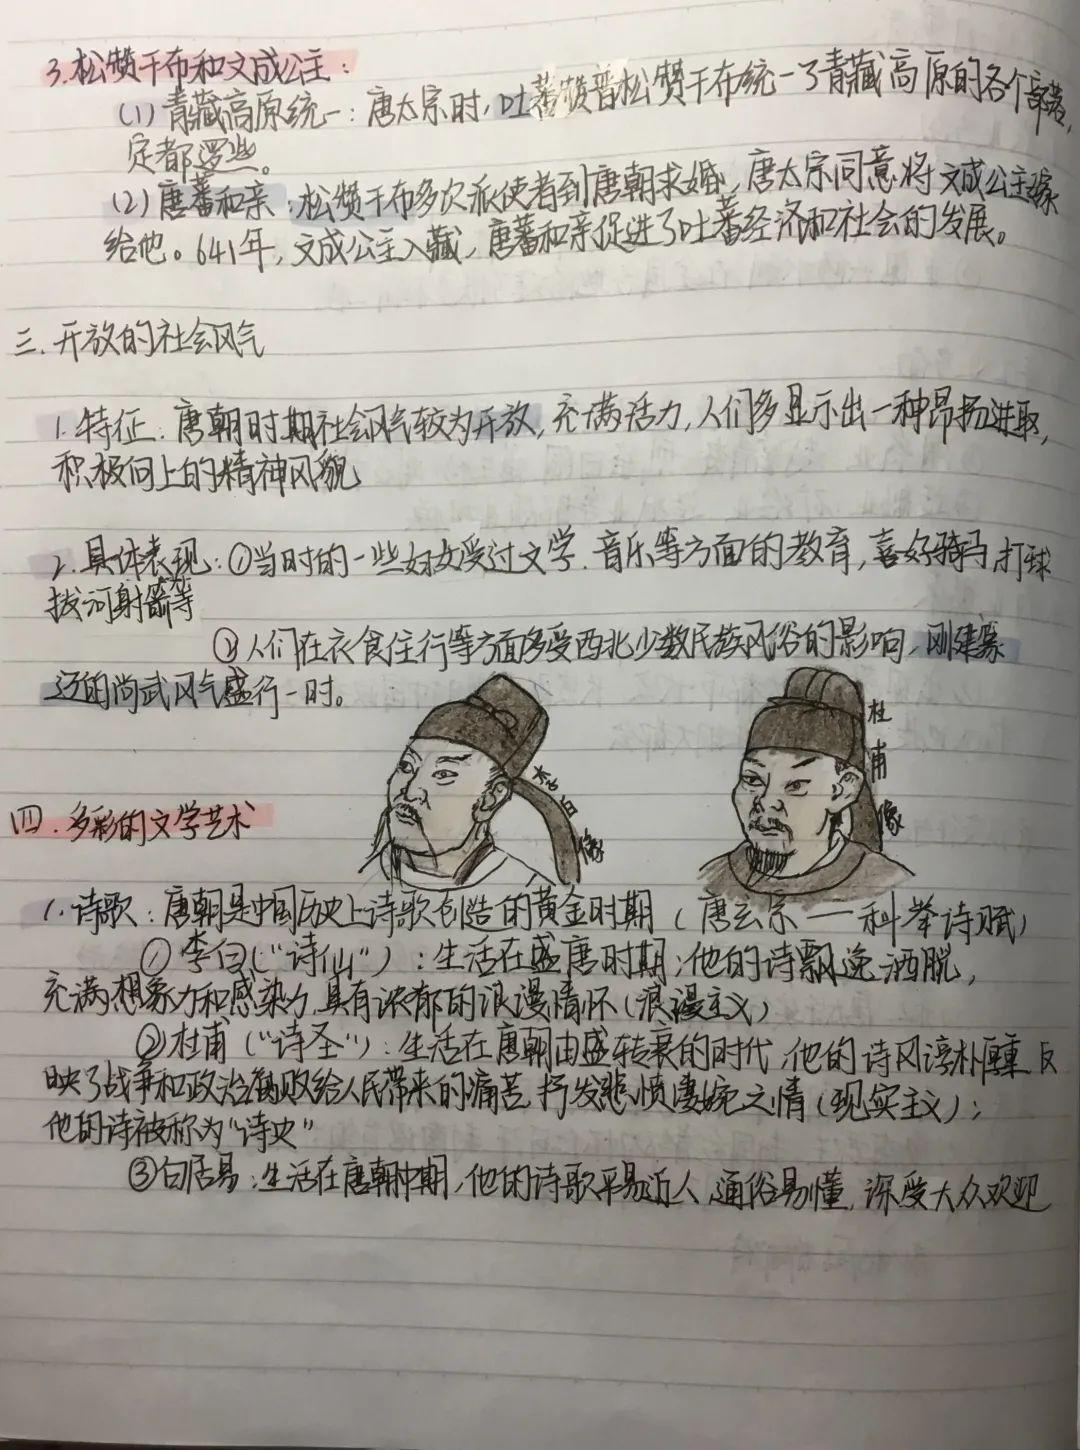 3.松赞干布和文成公主：
(1)青藏高原统一：唐太宗时，吐蕃赞普松赞干布统一了青藏高原的各个部落，
定都逻些。
(2)唐蕃和亲：松赞干布多次派使者到唐朝求婚，唐太宗同意将文成公主嫁
给他。641年，文成公主入藏，唐蕃和亲促进了吐蕃经济和社会的发展。
三.开放的社会风气
1.特征：唐朝时期社会风气较为开放，充满活力，人们多显示出一种昂扬进取，
积极向上的精神风貌
2.具体表现：①当时的一些妇女受过文学.音乐等方面的教育，喜好骑马,打球
拔河射箭等
②人们在衣食住行等方面多受西北少数民族风俗的影响，刚建豪
迈的尚武风气盛行一时。
李白像
杜甫像
四.多彩的文学艺术
1.诗歌：唐朝是中国历史上诗歌创造的黄金时期（唐玄宗——科举诗赋）
①李白（“诗仙”）：生活在盛唐时期；他的诗飘逸洒脱，
充满想象力和感染力，具有浓郁的浪漫情怀（浪漫主义）
②杜甫（“诗圣”）：生活在唐朝由盛转衰的时代，他的诗风淳朴厚重 反
映了战争和政治腐败给人民带来的痛苦，抒发悲愤凄婉之情（现实主义）；
他的诗被称为“诗史”
③白居易：生活在唐朝中期，他的诗歌平易近人，通俗易懂，深受大众欢迎